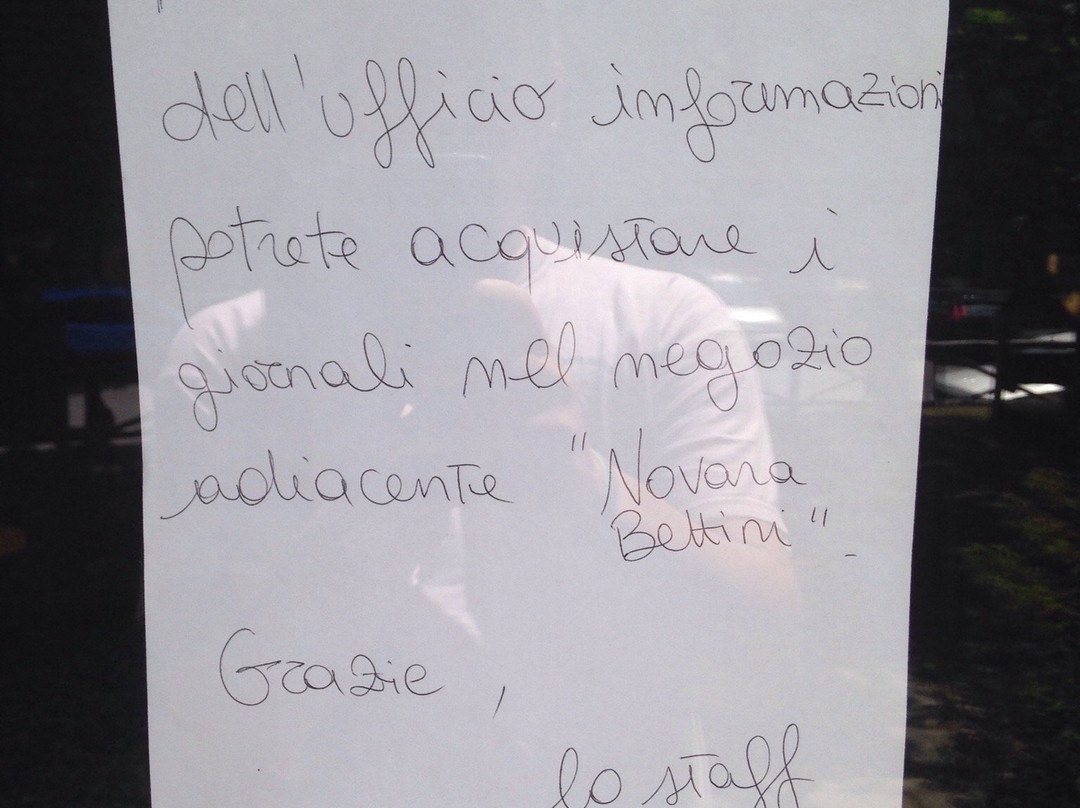 dell'ufficio informazioni
potrete acquistare i
giornali nel negozio
adiacente "Novara
Bettini".
Grazie,
lo staff